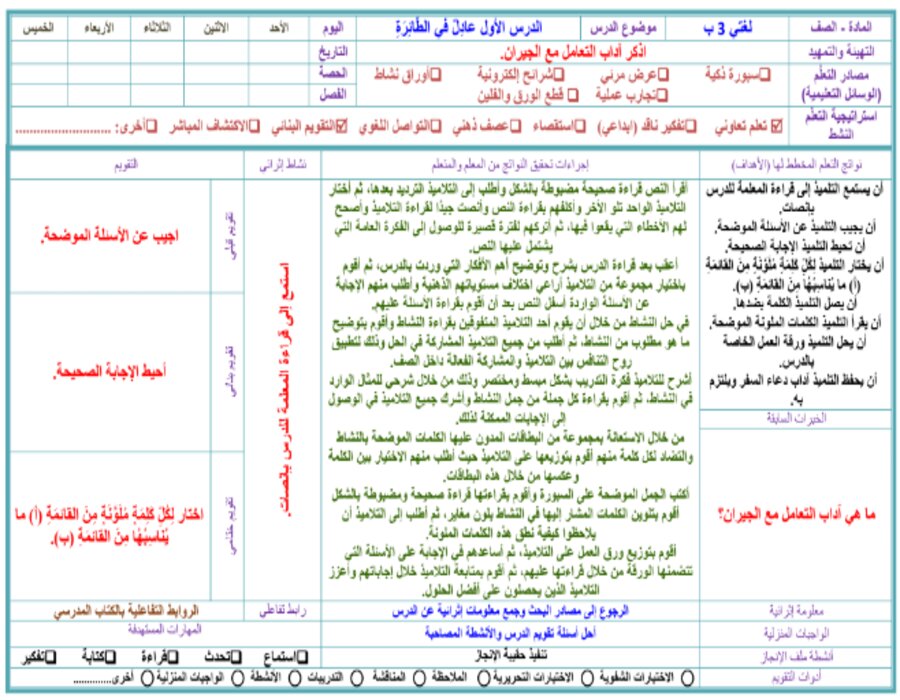 المادة - الصف لغتي 3 ب موضوع الدرس الدرس الأول عادل في الطَّائِرَةِ اليوم الأحد الاثنين الثلاثاء الأربعاء الخميس
التهيئة والتمهيد اذكر أداب التعامل مع الجيران. التاريخ
مصادر التعلّم (الوسائل التعليمية) ❑سبورة ذكية ❑عرض مرئي ❑شرائح إلكترونية ❑أوراق نشاط الحصة
❑تجارب عملية ❑ قطع الورق والفلين الفصل
استراتيجية التعلّم النشط ☑ تعلم تعاوني ❑تفكير ناقد (ابداعي) ❑استقصاء ❑عصف ذهني ❑التواصل اللغوي ☑التقويم البنائي ❑الاكتشاف المباشر ❑أخرى: ............................
نواتج التعلم المخطط لها (الأهداف) إجراءات تحقيق النواتج من المعلم والمتعلم نشاط إثرائي التقويم
أن يستمع التلميذ إلى قراءة المعلمة للدرس
بإنصات.
أن يجيب التلميذ عن الأسئلة الموضحة.
أن تحيط التلميذ الإجابة الصحيحة.
أن يختار التلميذ لِكُلِّ كَلِمَةٍ مُلَوَّنَةٍ مِنَ القَائِمَةِ
(أ) ما يُنَاسِبُهَا مِنَ القَائِمَةِ (ب).
أن يصل التلميذ الكلمة بضدها.
أن يقرأ التلميذ الكلمات الملونة الموضحة.
أن يحل التلميذ ورقة العمل الخاصة
بالدرس.
أن يحفظ التلميذ أداب دعاء السفر ويلتزم
به.
الخبرات السابقة
ما هي أداب التعامل مع الجيران؟
أقرأ النص قراءة صحيحة مضبوطة بالشكل وأطلب إلى التلاميذ الترديد بعدها، ثم أختار
التلاميذ الواحد تلو الأخر وأكلفهم بقراءة النص وأنصت جيدًا لقراءة التلاميذ وأصحح
لهم الأخطاء التي يقعوا فيها، ثم أتركهم لفترة قصيرة للوصول إلى الفكرة العامة التي
يشتمل عليها النص.
أعقب بعد قراءة الدرس بشرح وتوضيح أهم الأفكار التي وردت بالدرس، ثم أقوم
باختيار مجموعة من التلاميذ أراعي اختلاف مستوياتهم الذهنية وأطلب منهم الإجابة
عن الأسئلة الواردة أسفل النص بعد أن أقوم بقراءة الأسئلة عليهم.
في حل النشاط من خلال أن يقوم أحد التلاميذ المتفوقين بقراءة النشاط وأقوم بتوضيح
ما هو مطلوب من النشاط، ثم أطلب من جميع التلاميذ المشاركة في الحل وذلك لتطبيق
روح التنافس بين التلاميذ والمشاركة الفعالة داخل الصف.
أشرح للتلاميذ فكرة التدريب بشكل مبسط ومختصر وذلك من خلال شرحي للمثال الوارد
في النشاط، ثم أقوم بقراءة كل جملة من جمل النشاط وأشرك جميع التلاميذ في الوصول
إلى الإجابات الممكنة لذلك.
من خلال الاستعانة بمجموعة من البطاقات المدون عليها الكلمات الموضحة بالنشاط
والتضاد لكل كلمة منهم أقوم بتوزيعها على التلاميذ حيث أطلب منهم الاختيار بين الكلمة
وعكسها من خلال هذه البطاقات.
أكتب الجمل الموضحة على السبورة وأقوم بقراءتها قراءة صحيحة ومضبوطة بالشكل
أقوم بتلوين الكلمات المشار إليها في النشاط بلون مغاير، ثم أطلب إلى التلاميذ أن
يلاحظوا كيفية نطق هذه الكلمات الملونة.
أقوم بتوزيع ورق العمل على التلاميذ، ثم أساعدهم في الإجابة على الأسئلة التي
تتضمنها الورقة من خلال قراءتها عليهم، ثم أقوم بمتابعة التلاميذ خلال إجاباتهم وأعزز
التلاميذ الذين يحصلون على أفضل الحلول.
استمع إلى قراءة المعلمة للدرس بإنصات.
تقويم قبلي
اجيب عن الأسئلة الموضحة.
تقويم بنائي
أحيط الإجابة الصحيحة.
تقويم ختامي
اختار لِكُلِّ كَلِمَةٍ مُلَوَّنَةٍ مِنَ القَائِمَةِ (أ) ما
يُنَاسِبُهَا مِنَ القَائِمَةِ (ب).
معلومة إثرائية الرجوع إلى مصادر البحث وجمع معلومات إثرائية عن الدرس رابط تفاعلي الروابط التفاعلية بالكتاب المدرسي
الواجبات المنزلية أحل أسئلة تقويم الدرس والأنشطة المصاحبة المهارات المستهدفة
أنشطة ملف الإنجاز تنفيذ حقيبة الإنجاز ❑استماع ❑تحدث ❑قراءة ❑كتابة ❑تفكير
أدوات التقويم ◯ الاختبارات الشفوية ◯ الاختبارات التحريرية ◯ الملاحظة ◯ المناقشة ◯ التدريبات ◯ الأنشطة ◯ الواجبات المنزلية ◯ أخرى.............